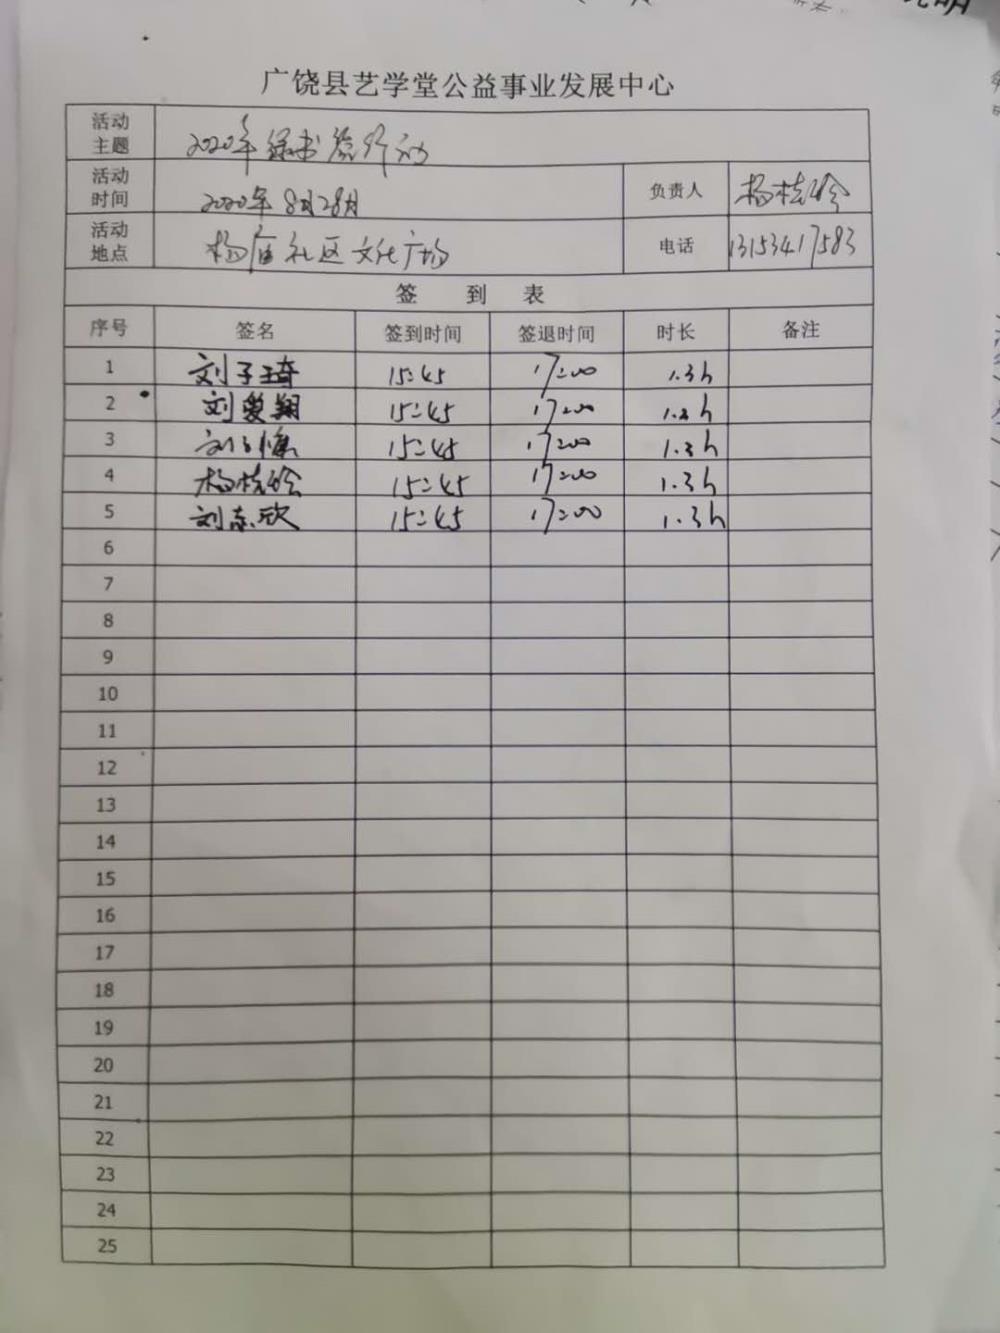 广饶县艺学堂公益事业发展中心
活动主题 2020年绿书签行动
活动时间 2020年8月28日 负责人 杨桂玲
活动地点 杨庙社区文化广场 电话 13153417583
签 到 表
序号 签名 签到时间 签退时间 时长 备注
1 刘子琦 15:45 17:00 1.3h
2 刘 翔 15:45 17:00 1.3h
3 刘 15:45 17:00 1.3h
4 杨桂玲 15:45 17:00 1.3h
5 刘东欣 15:45 17:00 1.3h
6
7
8
9
10
11
12
13
14
15
16
17
18
19
20
21
22
23
24
25